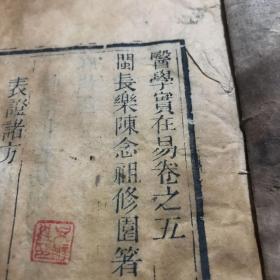 醫學實在易卷之五
閩長樂陳念祖修園著
表證諸方